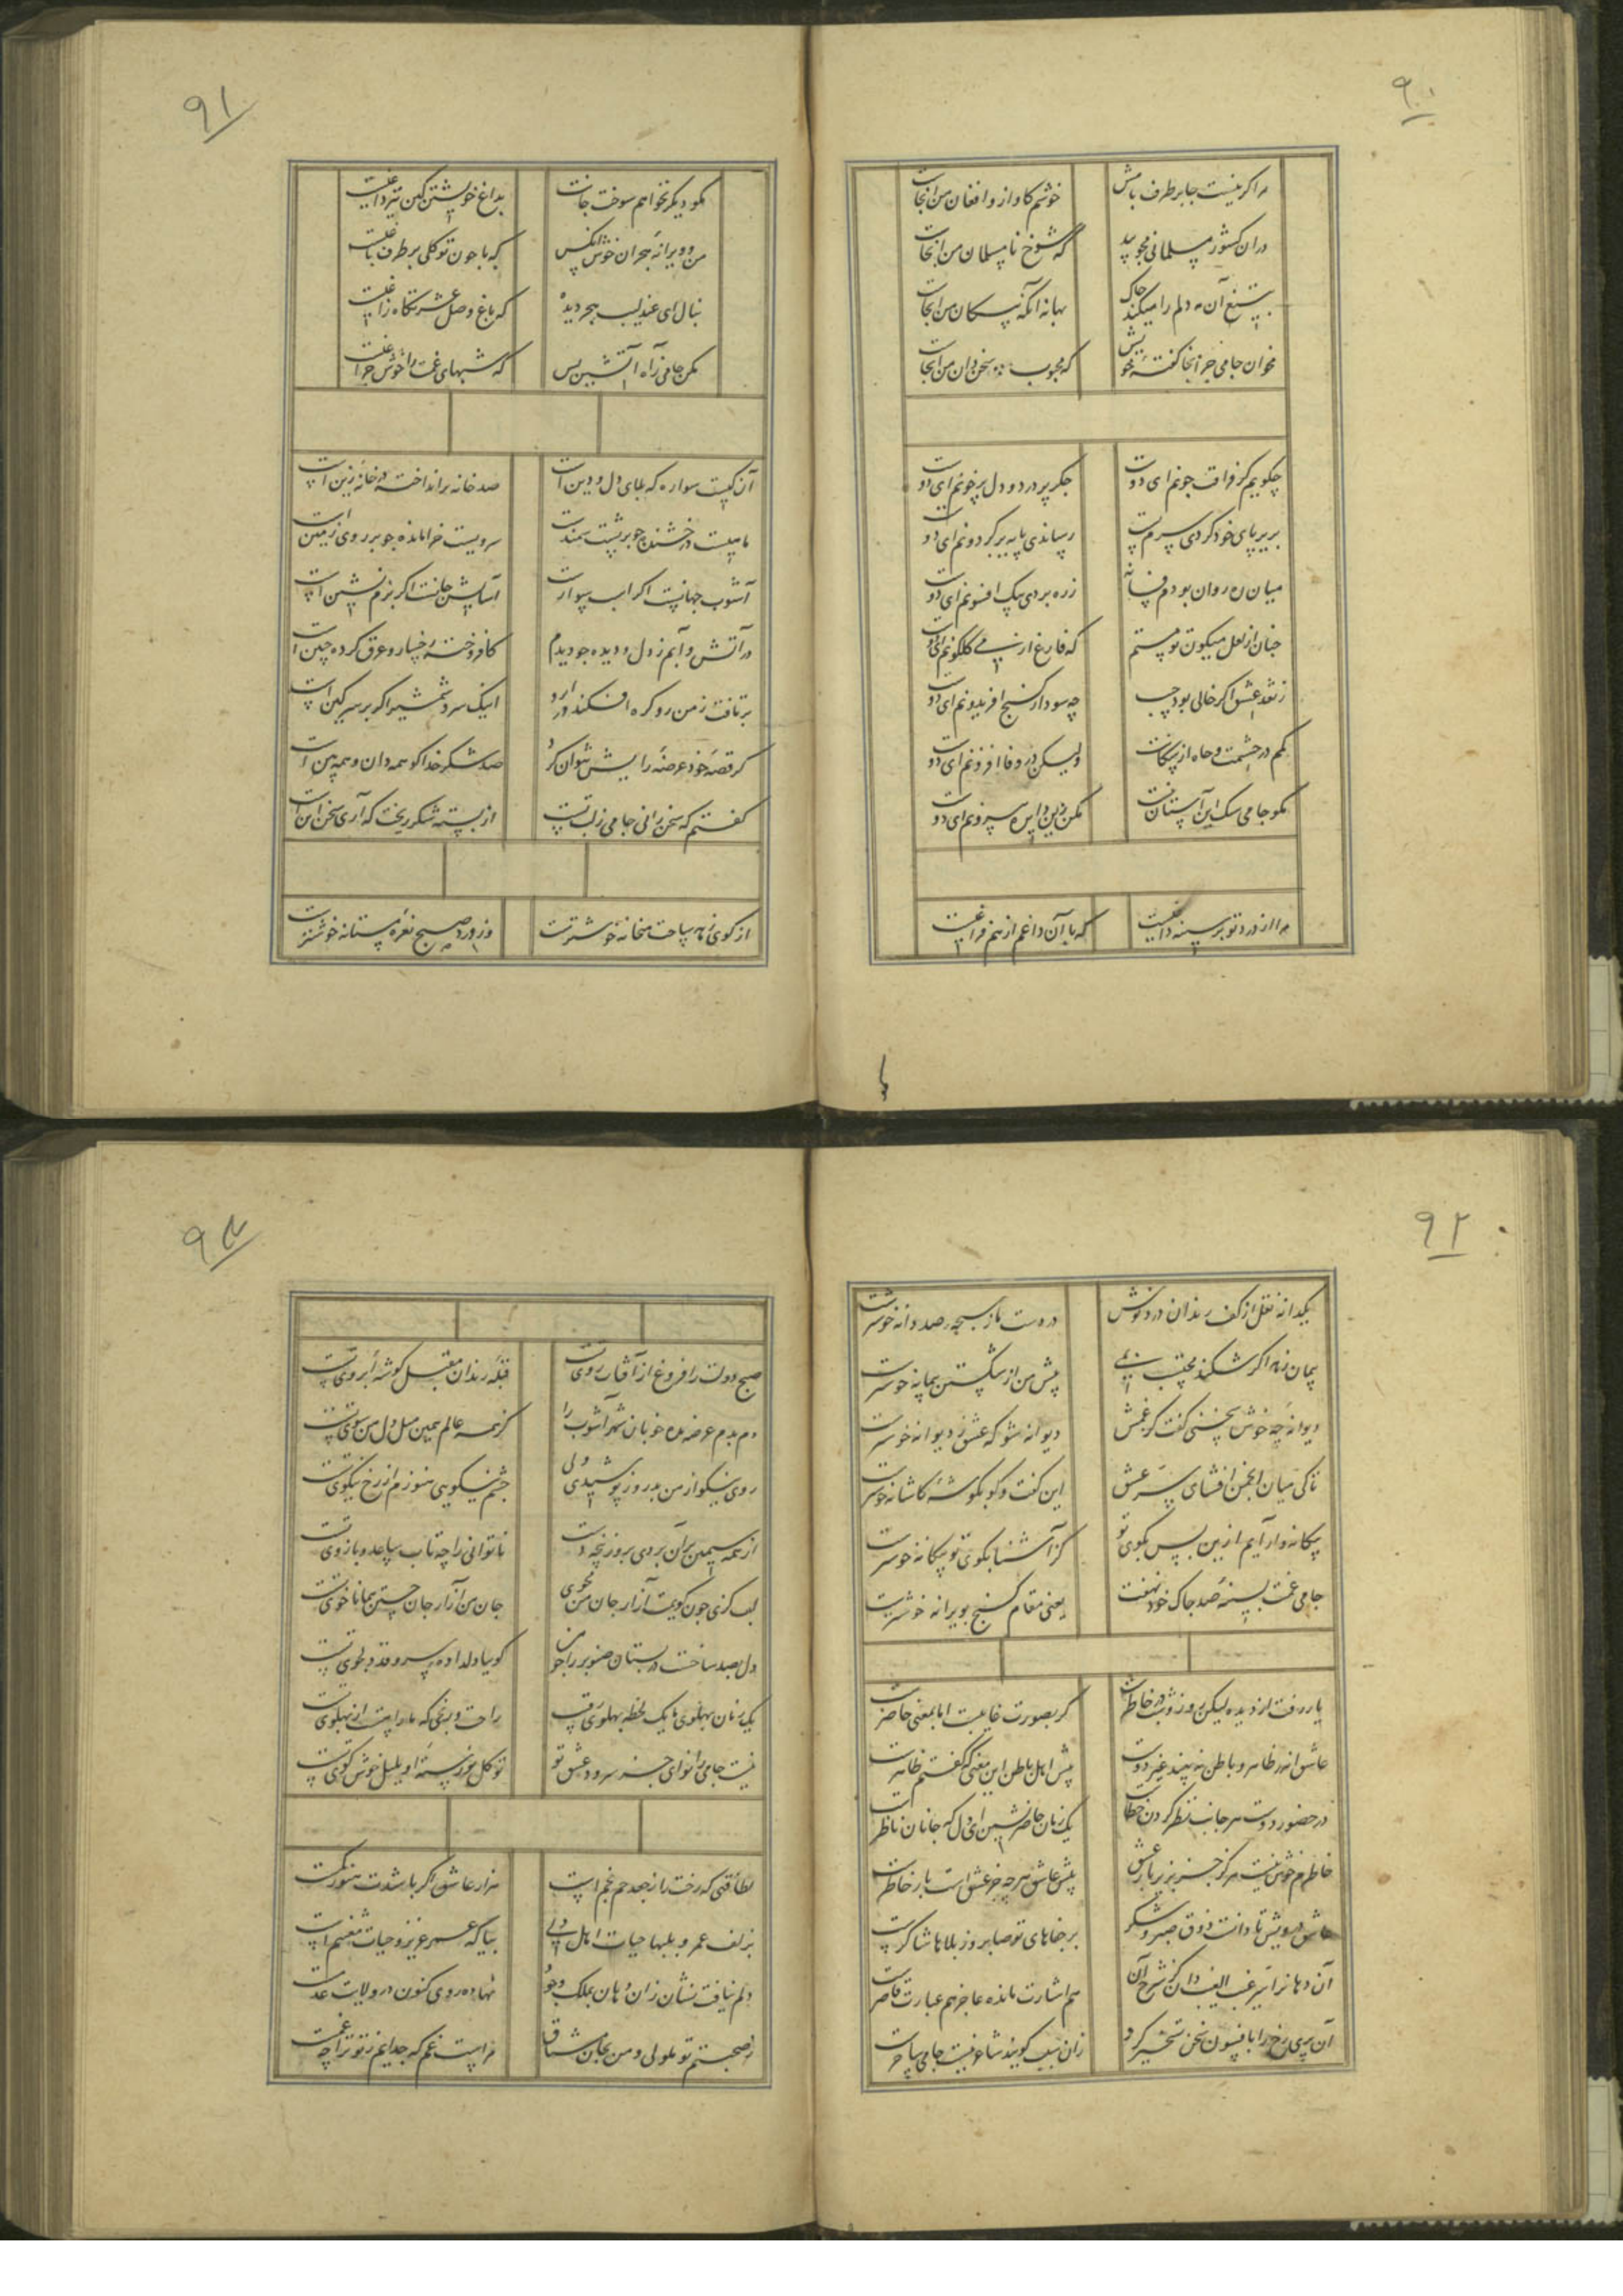 ۹۰
مرا گر نیست جا بر طرف بامش خوشم کاواز و افغان من آنجاست
در آن کشور مسلمانی مجویید که شوخ نامسلمان من آنجاست
به تیغ آن مه دلم را میکند چاک بهانه آنکه پیکان من آنجاست
مخوان جامی جز آنجا گفته خویش که محبوب سخن دان من آنجاست
چگویم کز فراقت چونم ای دوست جگر پر درد و دل پر خونم ای دوست
بزیر پای خود کردی سرم پست رساندی پایه بر گردونم ای دوست
میان رهروان بودم فسانه ز ره بردی بیک افسونم ای دوست
چنان از لعل میگون تو مستم که فارغ از می گلگونم ای دوست
ز نقد عشق اگر خالی بود جیب چه سود از گنج افریدونم ای دوست
کمم در حشمت و جاه از سگانت ولیکن در وفا افزونم ای دوست
مگو جامی سگ این آستان نیست مکن زین دایره بیرونم ای دوست
مرا از درد تو بر سینه داغیست که با آن داغم از مرهم فراغیست
۹۱
مگو دیگر نخواهم سوخت جانت بداغ خویشتن کین نیز داغیست
من و ویرانه هجران خوش آنکس که با چون تو گلی بر طرف باغیست
بنال ای عندلیب هجر دیده که باغ وصل عشرتگاه زاغیست
مکن جامی ز آه آتشین بس که شبهای غمت را خوش چراغیست
آن کیست سواره که بلای دل و دین است صد خانه برانداخته در خانه زین است
ماهیست درخشنده چو بر پشت سمند است سرویست خرامنده چو بر روی زمین است
آشوب جهانیست اگر اسب سوار است آسایش جانست اگر بزم نشین است
در آتش و آبم ز دل و دیده چو دیدم کافروخته رخسار و عرق کرده جبین است
برتافت ز من رو گره افکند در ابرو اینک سر و شمشیر اگر بر سر کین است
گر قصه خود عرضه برایش نتوان کرد صد شکر خدا کو همه دان و همه بین است
گفتم که سخن رانی جامی ز لب تست از پسته شکر ریخت که آری سخن این است
از کوی زهد ساحت میخانه خوشترست وز ورد صبح نعره مستانه خوشترست
۹۲
یکدانه نقل از کف رندان درد نوش در دست ما ز سبحه صد دانه خوشترست
پیمان زهد اگر شکند محتسب پیش من از شکستن پیمانه خوشترست
دیوانه چه خوش سخنی گفت کز غمش دیوانه شو که عشق ز دیوانه خوشترست
تا کی میان انجمن افشای سر عشق این گفت و گو بگوشه کاشانه خوشترست
بیگانه وار آیم ازین پس بکوی تو کز آشنا بکوی تو بیگانه خوشترست
جامی غمت بسینه صد چاک خود نهفت یعنی مقام گنج بویرانه خوشترست
یار رفت از دیده لیکن روز و شب در خاطرست گر بصورت غایبست اما بمعنی حاضرست
عاشق اندر ظاهر و باطن نبیند غیر دوست پیش اهل باطن این معنی که گفتم ظاهرست
در حضور دوست هر جانب نظر کردن خطاست یک زمان حاضر نشین ای دل که جانان ناظرست
خاطرم خوش نیست هرگز جز بزیر بار عشق پیش عاشق هر چه جز عشق است بار خاطرست
عاشق درویش تا دانست ذوق صبر و شکر بر جفاهای تو صابر وز بلاها شاکرست
آن دهان را سر غیب الغیب دان کز شرح آن هم اشارت مانده عاجز هم عبارت قاصرست
آن پری رخ را بافسون سخن تسخیر کرد زان سبب گویند شاعر نیست جامی ساحرست
۹۳
صبح دولت را فروغ از آفتاب روی تست قبله رندان مقبل گوشه ابروی تست
دم بدم عرضه مده خوبان شهر آشوب را کز همه عالم همین میل دل من سوی تست
روی نیکو از من بد روز پوشیدی ولی چشم نیکویی هنوزم از رخ نیکوی تست
از همه سیمین بران بردی بزور پنجه دست ناتوانی را چه تاب ساعد و بازوی تست
لب گزی چون گویمت آزار جان من مجوی جان من آزار جان جستن همانا خوی تست
دل بصد شاخست در بستان صنوبر را چو من گوییا دلداده سرو قد دلجوی تست
یک زمان پهلوی ما یک لحظه پهلوی رقیب راحت و رنجی که ما راهست از پهلوی تست
نیست جامی را نوای جز سرود عشق تو تو گل نورسته او بلبل خوش گوی تست
لطافتی که رخت را ز جعد خم بخم است هزار عاشق اگر باشدت هنوز کم است
بزلف عمر و بلبها حیات اهل دلی بیا که عمر عزیز و حیات مغتنم است
دلم نیافت نشان زان دهان بملک وجود نهاده روی کنون در ولایت عدم است
ز صحبتم تو ملولی و من بجان مشتاق مراست غم که جدایم ز تو ترا چه غمست